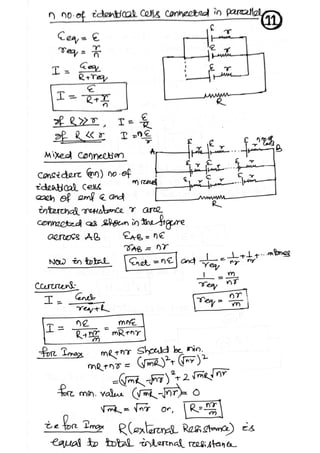 n no. of identical cells connected in parallel
11
ξeq = ξ
req = r/n
I = ξeq/(R+req)
I = ξ/(R+r/n)
If R>>r, I = ξ/R
If R<<r I = nξ/r
ξ r
ξ r
ξ r
R
Mixed Connection
Consider (mn) no. of
identical cells
each of emf ξ and
internal resistance r are
connected as shown in the figure
across AB ξAB = nξ
rAB = nr
A B
m rows
R
Now in total ξnet = nξ and 1/req = 1/nr + 1/nr + ... m times
1/req = m/nr
req = nr/m
Current:
I = ξnet/(req+R)
I = nξ/(R+nr/m) = mnξ/(mR+nr)
for Imax mR+nr should be min.
mR+nr = (√mR)²+(√nr)²
=(√mR-√nr)²+2√mR√nr
for min. value (√mR-√nr)=0
√mR = √nr or, R=nr/m
i.e for Imax R(external Resistance) is
equal to total internal resistance